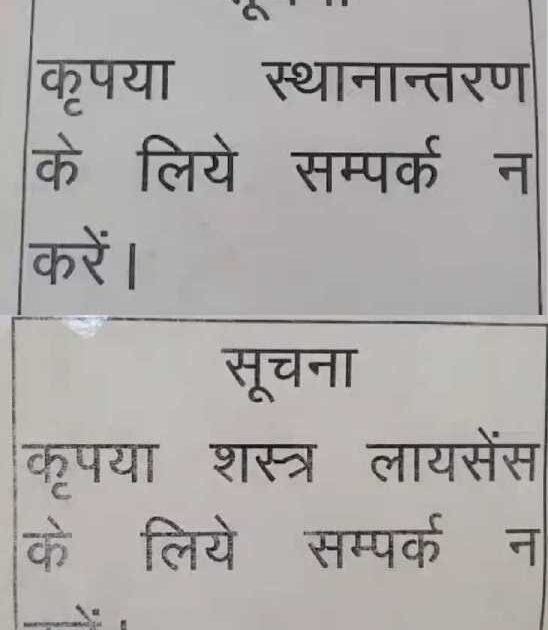 कृपया स्थानान्तरण
के लिये सम्पर्क न
करें।
सूचना
कृपया शस्त्र लायसेंस
के लिये सम्पर्क न